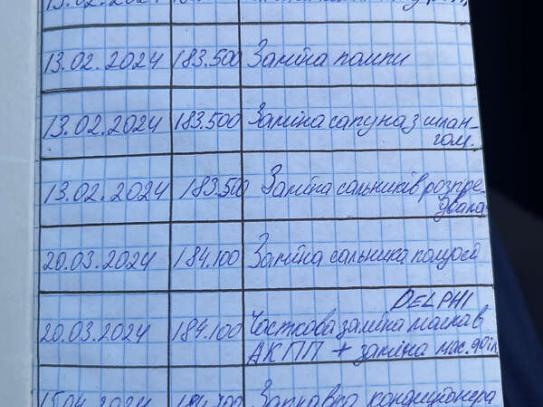 13.02.2024 183.500 Заміна помпи
13.02.2024 183.500 Заміна сапуна з шлан-
гом.
13.02.2024 183.500 Заміна сальників розпре
двала
20.03.2024 184.100 Заміна сальника
DELPHI
20.03.2024 184.100 Часткова заміна масла в
АКПП + заміна мас.
Заправка кондиціонера